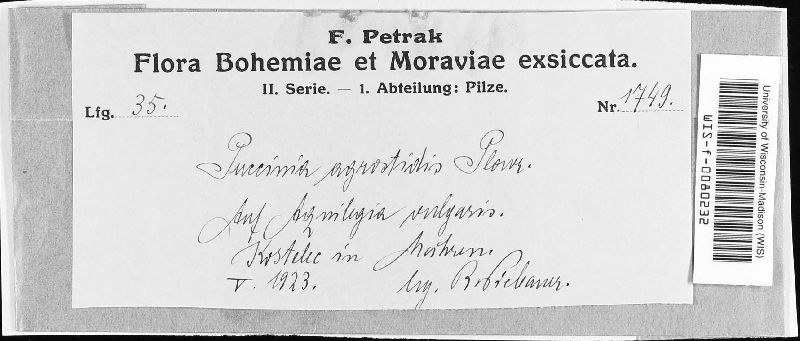 F. Petrak
Flora Bohemiae et Moraviae exsiccata.
II. Serie. — 1. Abteilung: Pilze.
Lfg. 35.
Nr. 1749.
Puccinia agrostidis Plowr.
Auf Aquilegia vulgaris.
Kostelec in Mähren.
V. 1923. lg. R. Picbauer.
University of Wisconsin-Madison (WIS)
WIS-f-0080232